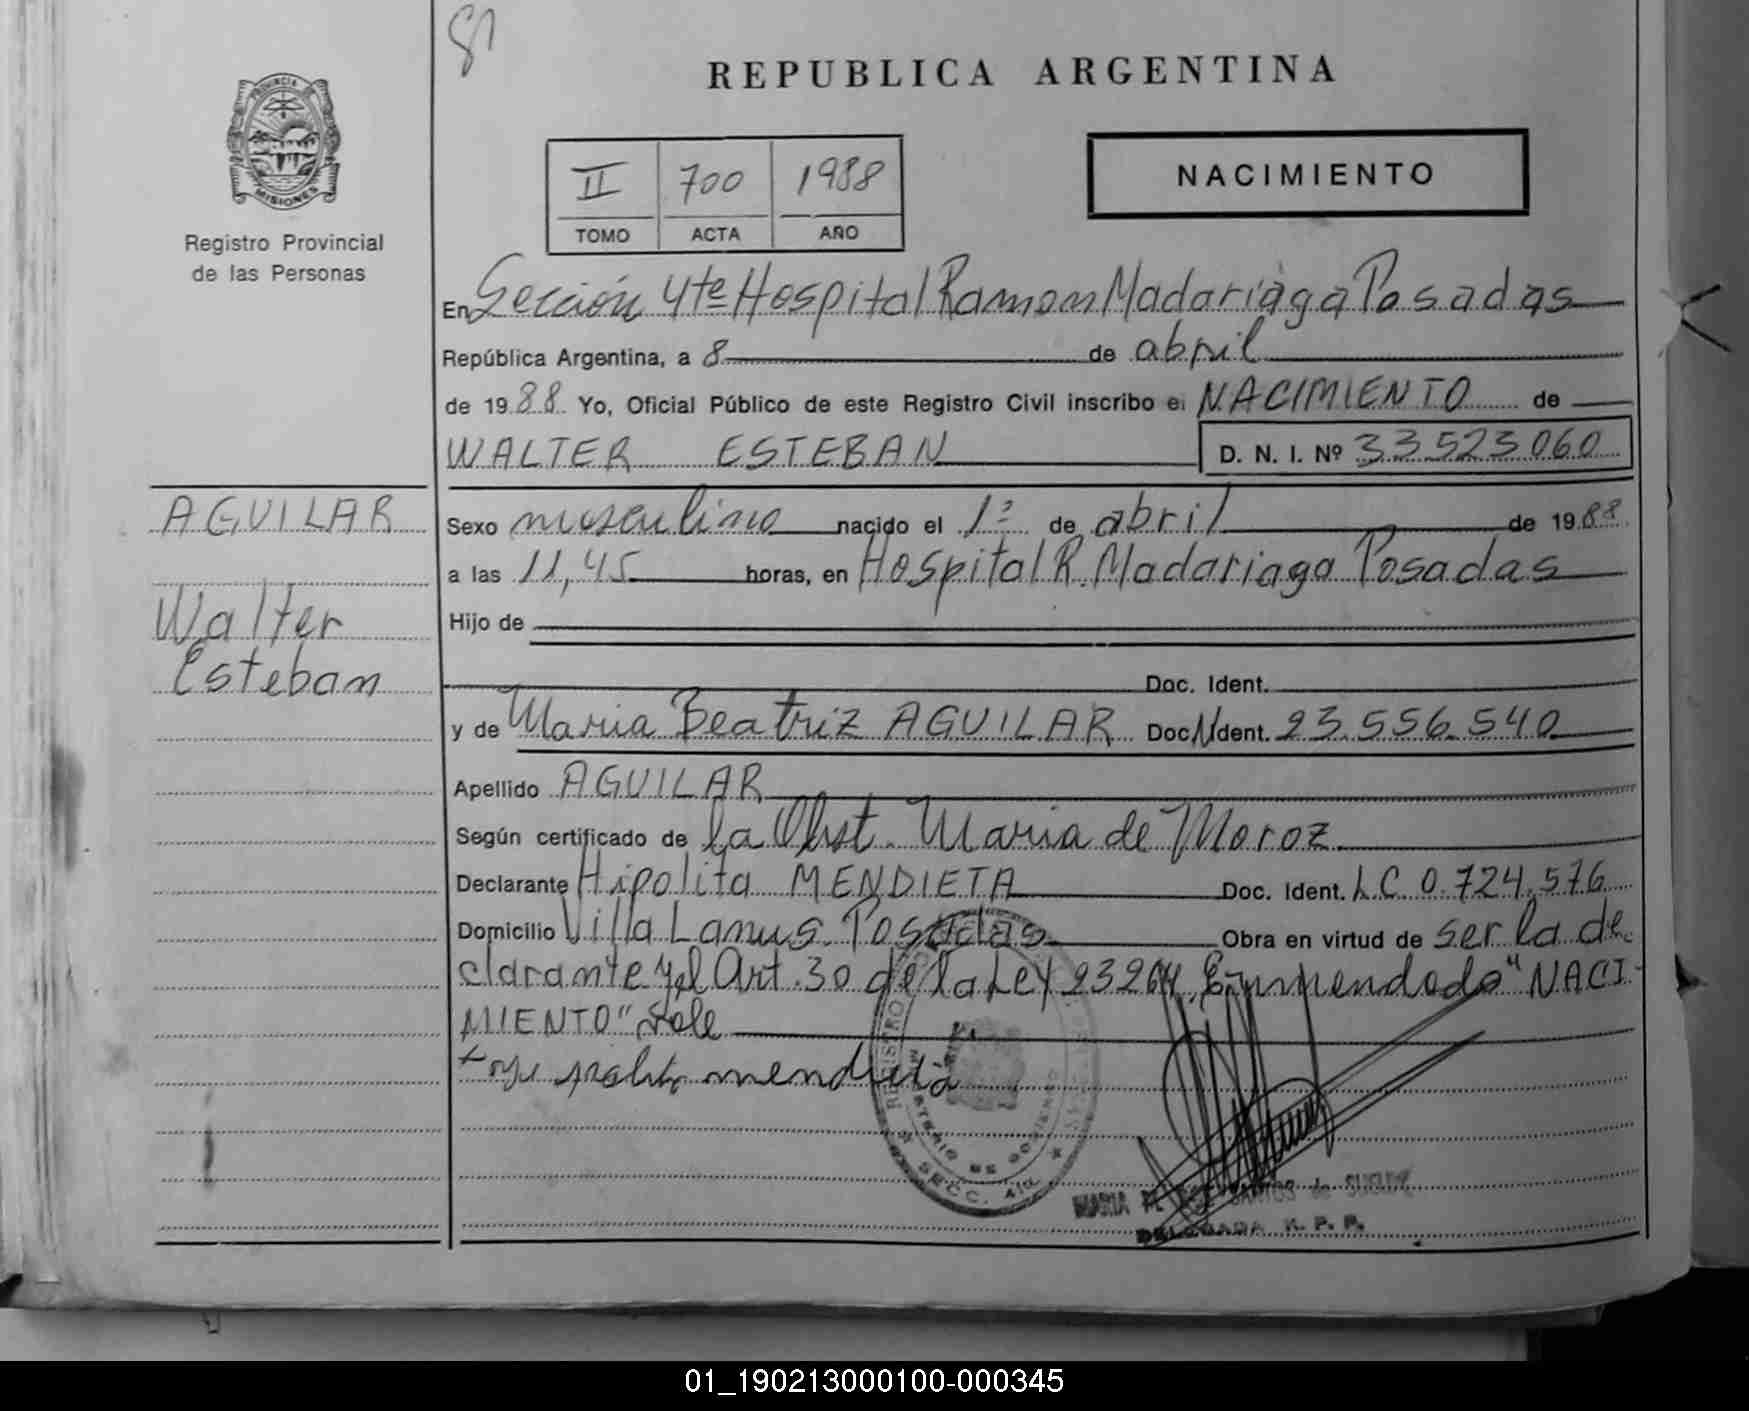 REPUBLICA ARGENTINA
PROVINCIA DE
MISIONES
Registro Provincial
de las Personas
II 700 1988
TOMO ACTA AÑO
NACIMIENTO
En Sección 4te Hospital Ramon Madariaga Posadas
República Argentina, a 8 de abril
de 1988 Yo, Oficial Público de este Registro Civil inscribo el NACIMIENTO de
WALTER ESTEBAN D. N. I. Nº 33523060
AGUILAR
Walter
Esteban
Sexo masculino nacido el 1º de abril de 1988
a las 11,45 horas, en Hospital R. Madariaga Posadas
Hijo de
Doc. Ident.
y de Maria Beatriz AGUILAR Doc. Ident. 23.556.540
Apellido AGUILAR
Según certificado de la Obst. Maria de Moroz
Declarante Hipolita MENDIETA Doc. Ident. L.C 0.724.576
Domicilio Villa Lanus. Posadas Obra en virtud de ser la de
clarante y el Art. 30 de la Ley 23264. Enmendado "NACI-
MIENTO" Vale
mendieta
REGISTRO
MINISTERIO DE GOBIERNO
SECC. 4ta
MARIA SANTOS de
DELEGADA R. P. P.
01_190213000100-000345